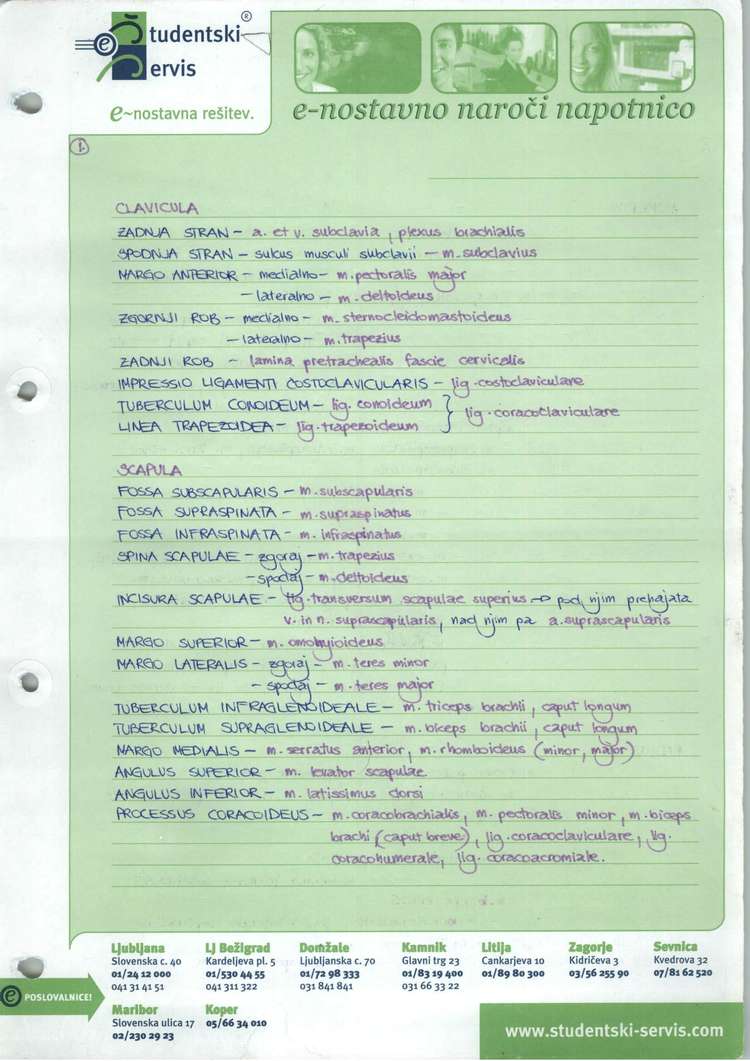 Študentski®
Servis
e~nostavna rešitev.
e-nostavno naroči napotnico
1.
CLAVICULA
ZADNJA STRAN - a. et v. subclavia, plexus brachialis
SPODNJA STRAN - sulcus musculi subclavii - m. subclavius
MARGO ANTERIOR - medialno - m. pectoralis major
- lateralno - m. deltoideus
ZGORNJI ROB - medialno - m. sternocleidomastoideus
- lateralno - m. trapezius
ZADNJI ROB - lamina pretrachealis fascie cervicalis
IMPRESSIO LIGAMENTI COSTOCLAVICULARIS - lig. costoclaviculare
TUBERCULUM CONOIDEUM - lig. conoideum } lig. coracoclaviculare
LINEA TRAPEZOIDEA - lig. trapezoideum
SCAPULA
FOSSA SUBSCAPULARIS - m. subscapularis
FOSSA SUPRASPINATA - m. supraspinatus
FOSSA INFRASPINATA - m. infraspinatus
SPINA SCAPULAE - zgoraj - m. trapezius
- spodaj - m. deltoideus
INCISURA SCAPULAE - lig. transversum scapulae superius → pod njim prehajata
v. in n. suprascapularis, nad njim pa a. suprascapularis
MARGO SUPERIOR - m. omohyioideus
MARGO LATERALIS - zgoraj - m. teres minor
- spodaj - m. teres major
TUBERCULUM INFRAGLENOIDEALE - m. triceps brachii, caput longum
TUBERCULUM SUPRAGLENOIDEALE - m. biceps brachii, caput longum
MARGO MEDIALIS - m. serratus anterior, m. rhomboideus (minor, major)
ANGULUS SUPERIOR - m. levator scapulae
ANGULUS INFERIOR - m. latissimus dorsi
PROCESSUS CORACOIDEUS - m. coracobrachialis, m. pectoralis minor, m. biceps
brachi (caput breve), lig. coracoclaviculare, lig.
coracohumerale, lig. coracoacromiale.
Ljubljana
Slovenska c. 40
01/24 12 000
041 31 41 51
Lj Bežigrad
Kardeljeva pl. 5
01/530 44 55
041 311 322
Domžale
Ljubljanska c. 70
01/72 98 333
031 841 841
Kamnik
Glavni trg 23
01/83 19 400
031 66 33 22
Litija
Cankarjeva 10
01/89 80 300
Zagorje
Kidričeva 3
03/56 255 90
Sevnica
Kvedrova 32
07/81 62 520
e POSLOVALNICE!
Maribor
Slovenska ulica 17
02/230 29 23
Koper
05/66 34 010
www.studentski-servis.com